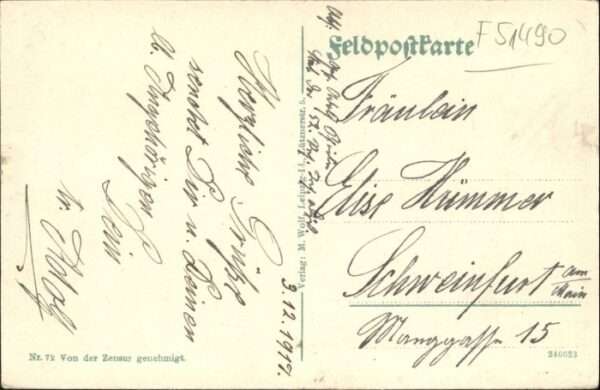 Feldpostkarte
F 51490
Fräulein
Elise Hümmer
Schweinfurt am Main
Manggasse 15
3.12.1917.
Herzliche Grüße
sendet Dir u. Deinen
lb. Angehörigen
Dein
Adolf
Verlag: M. Wolf, Leipzig-Li., Lützenerstr. 5.
Nr. 72 Von der Zensur genehmigt.
240623